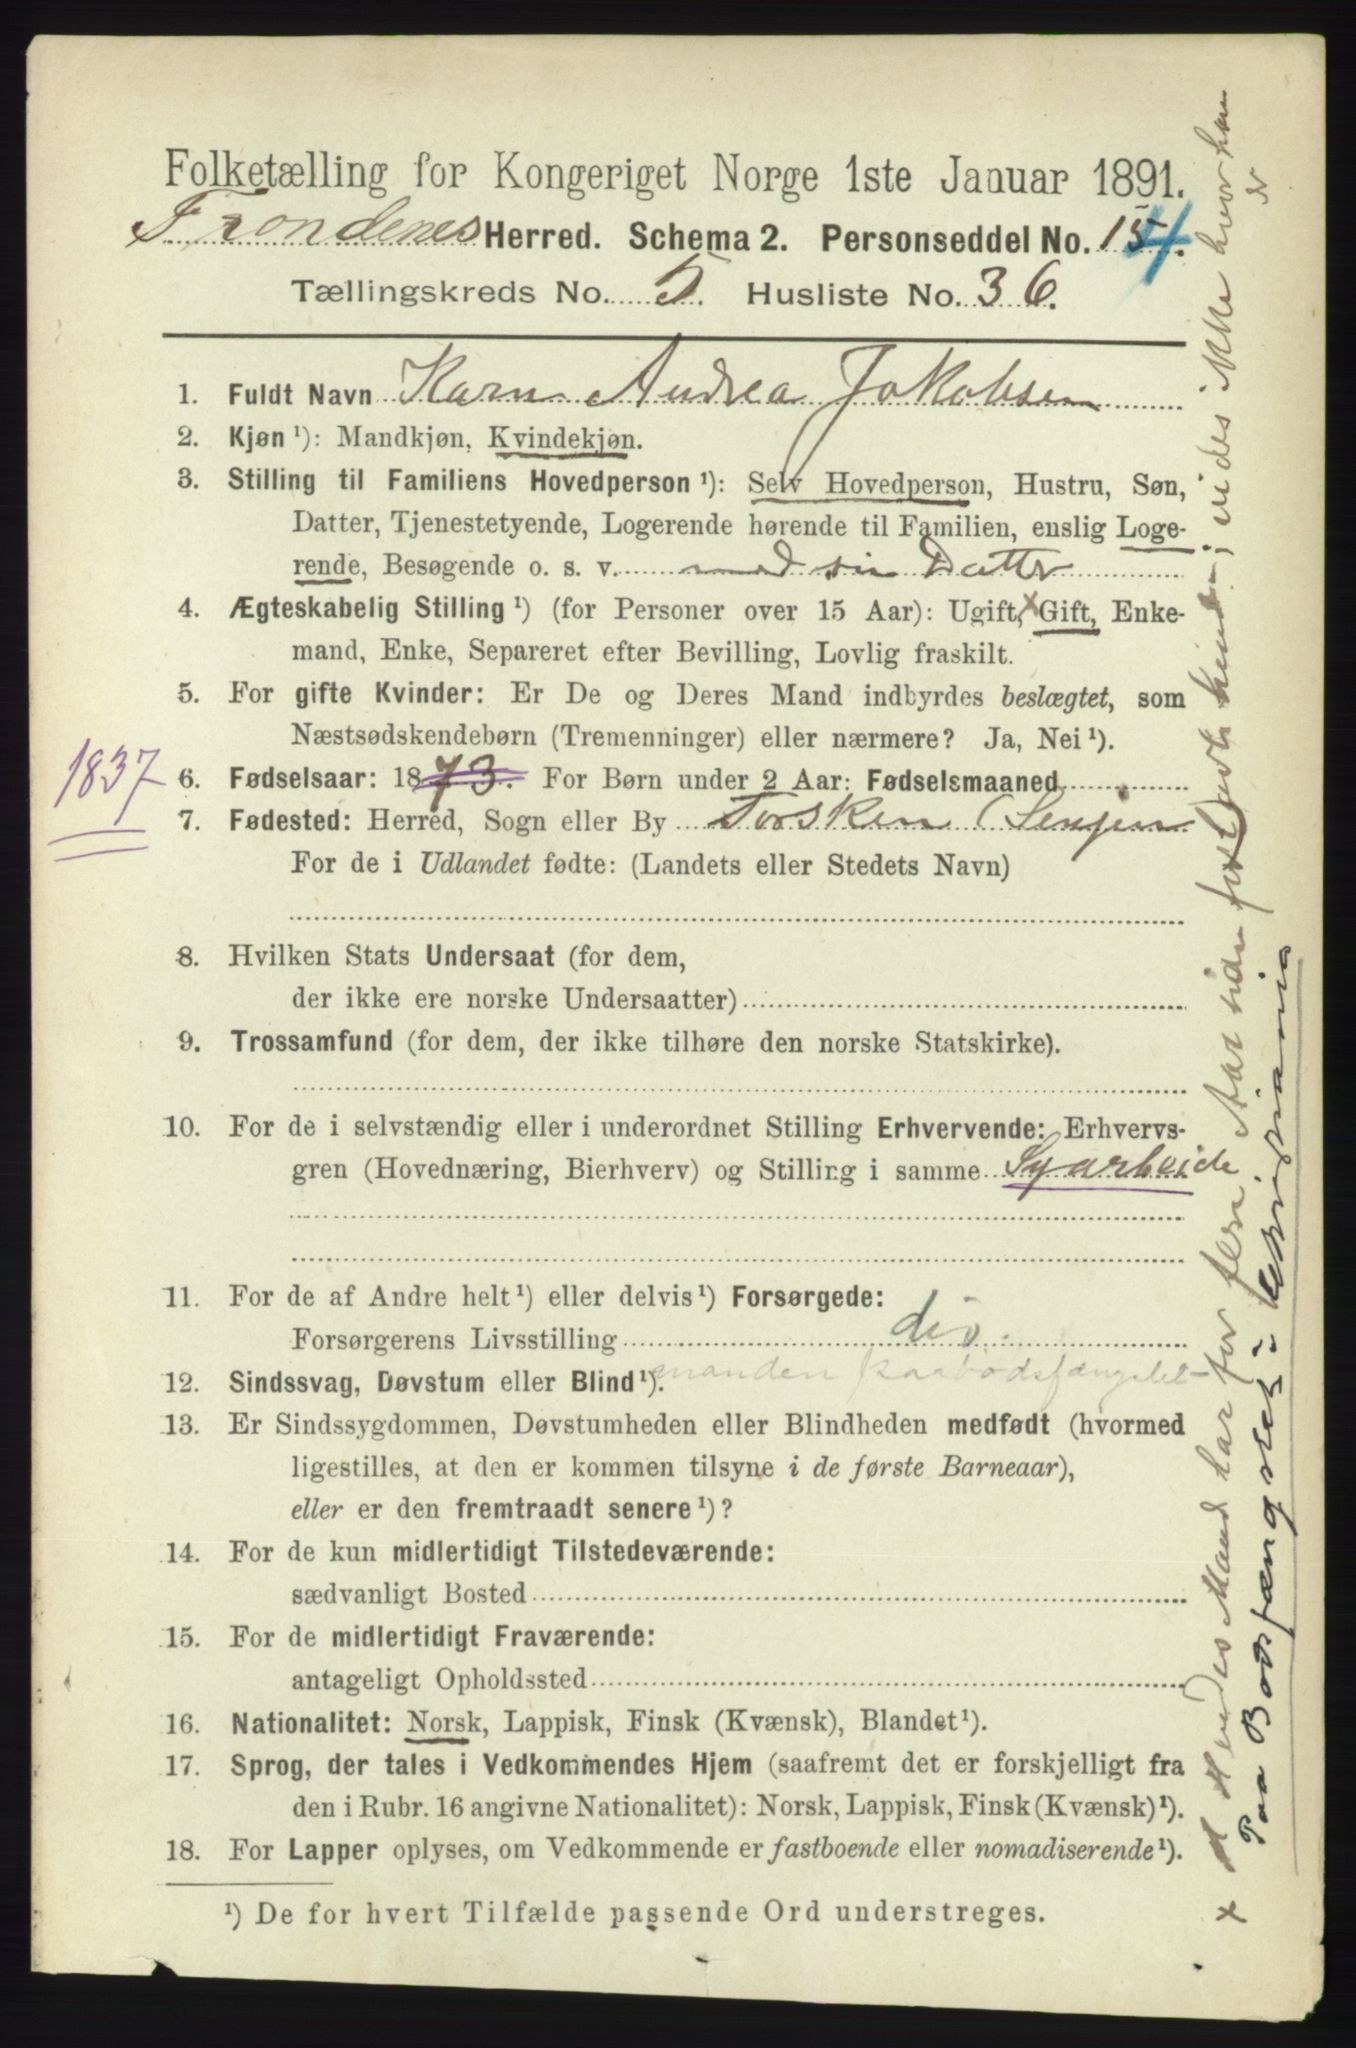 Folketælling for Kongeriget Norge 1ste Januar 1891.
Trondenes Herred. Schema 2. Personseddel No. 154.
Tællingskreds No. 5. Husliste No. 36.
1. Fuldt Navn Karn Andrea Jakobsen
2. Kjøn ¹): Mandkjøn, Kvindekjøn.
3. Stilling til Familiens Hovedperson ¹): Selv Hovedperson, Hustru, Søn,
Datter, Tjenestetyende, Logerende hørende til Familien, enslig Loge-
rende, Besøgende o. s. v. med sin Datter
4. Ægteskabelig Stilling ¹) (for Personer over 15 Aar): Ugift, x Gift, Enke-
mand, Enke, Separeret efter Bevilling, Lovlig fraskilt.
5. For gifte Kvinder: Er De og Deres Mand indbyrdes beslægtet, som
Næstsødskendebørn (Tremenninger) eller nærmere? Ja, Nei ¹).
1837
6. Fødselsaar: 1873. For Børn under 2 Aar: Fødselsmaaned
7. Fødested: Herred, Sogn eller By Torsken (Senjen)
For de i Udlandet fødte: (Landets eller Stedets Navn)
8. Hvilken Stats Undersaat (for dem,
der ikke ere norske Undersaatter)
9. Trossamfund (for dem, der ikke tilhøre den norske Statskirke).
10. For de i selvstændig eller i underordnet Stilling Erhvervende: Erhvervs-
gren (Hovednæring, Bierhverv) og Stilling i samme Syarbeide
11. For de af Andre helt ¹) eller delvis ¹) Forsørgede:
Forsørgerens Livsstilling div.
manden paa bodsfængslet
12. Sindssvag, Døvstum eller Blind ¹).
13. Er Sindssygdommen, Døvstumheden eller Blindheden medfødt (hvormed
ligestilles, at den er kommen tilsyne i de første Barneaar),
eller er den fremtraadt senere ¹)?
14. For de kun midlertidigt Tilstedeværende:
sædvanligt Bosted
15. For de midlertidigt Fraværende:
antageligt Opholdssted
16. Nationalitet: Norsk, Lappisk, Finsk (Kvænsk), Blandet ¹).
17. Sprog, der tales i Vedkommendes Hjem (saafremt det er forskjelligt fra
den i Rubr. 16 angivne Nationalitet): Norsk, Lappisk, Finsk (Kvænsk) ¹).
18. For Lapper oplyses, om Vedkommende er fastboende eller nomadiserende ¹).
¹) De for hvert Tilfælde passende Ord understreges.
x Hendes Mand har for flere Aar siden forladt hende; vides ikke hvor han
er
Paa Bodsfængslet i Kristiania